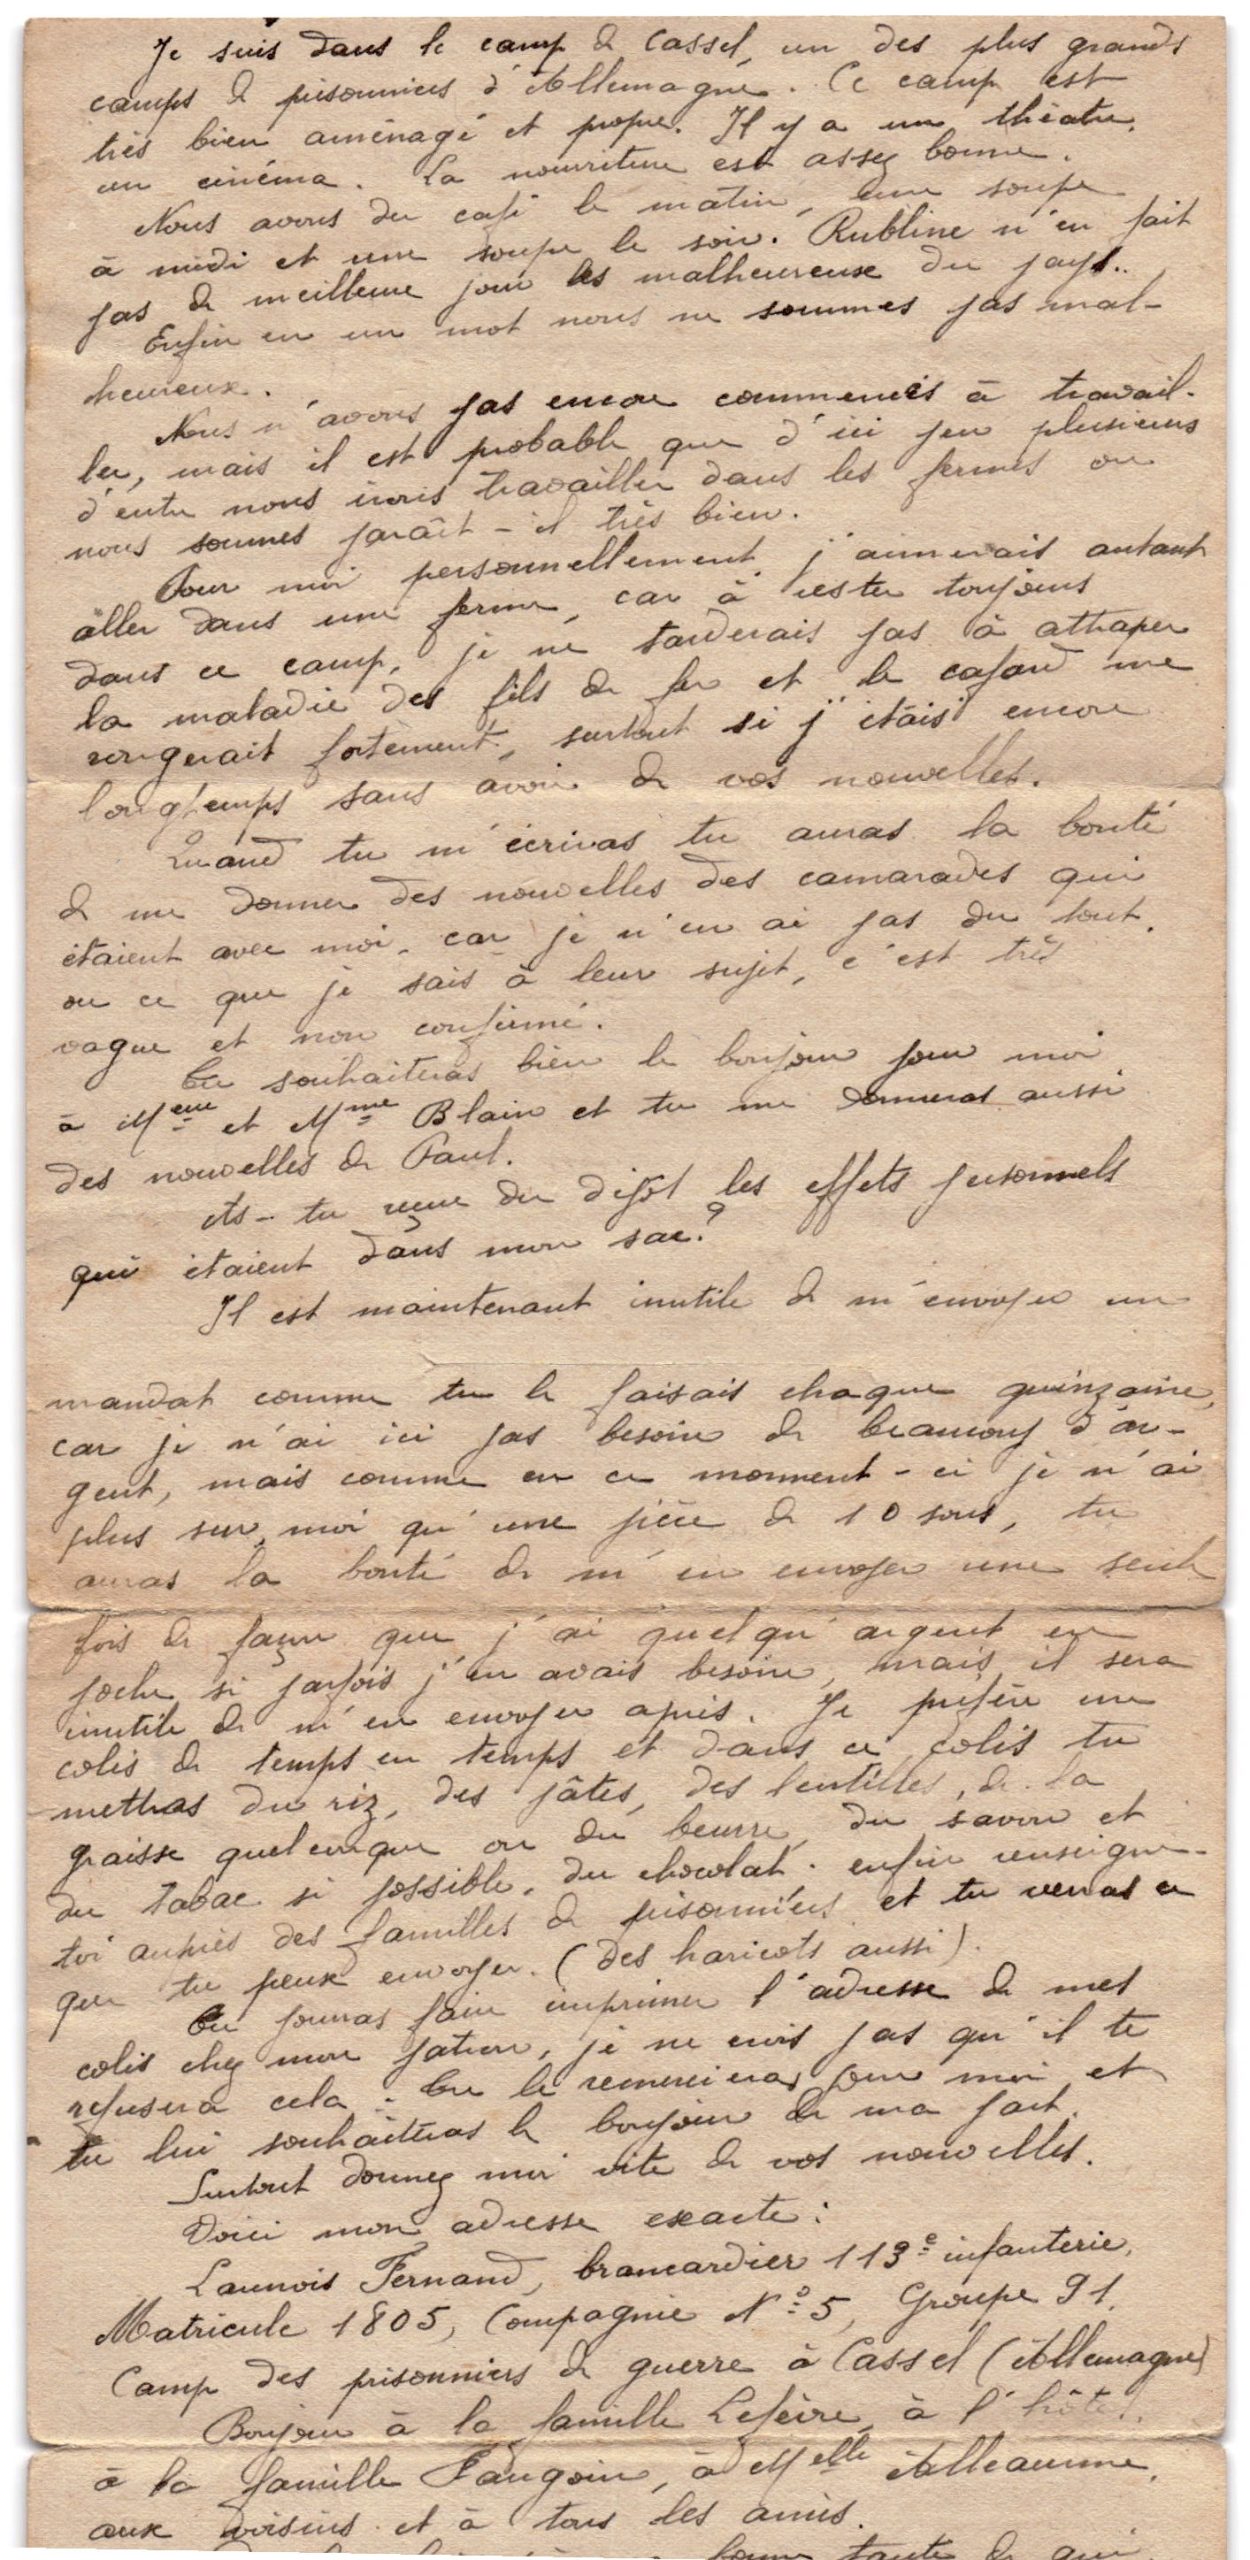 Je suis dans le camp de Cassel, un des plus grands
camps de prisonniers d'Allemagne. Ce camp est
très bien aménagé et propre. Il y a un théatre,
un cinéma. La nourriture est assez bonne.
Nous avons du café le matin, une soupe
à midi et une soupe le soir. Rubline n'en fait
pas de meilleure pour les malheureux du pays..
Enfin en un mot nous ne sommes pas mal-
heureux.
Nous n'avons pas encore commencés à travail-
ler, mais il est probable que d'ici peu plusieurs
d'entre nous irons travailler dans les fermes ou
nous sommes paraît-il très bien.
Pour moi personnellement, j'aimerais autant
aller dans une ferme, car à rester toujours
dans ce camp, je ne tarderais pas à attraper
la maladie des fils de fer et le cafard me
rongerait fortement, surtout si j'étais encore
longtemps sans avoir de vos nouvelles.
Quand tu m'écriras tu auras la bonté
de me donner des nouvelles des camarades qui
étaient avec moi, car je n'en ai pas du tout,
ou ce que je sais à leur sujet, c'est très
vague et non confirmé.
Tu souhaiteras bien le bonjour pour moi
à Meur et Mme Blain et tu me donneras aussi
des nouvelles de Paul.
As-tu reçue du dépôt les effets personnels
qui étaient dans mon sac?
Il est maintenant inutile de m'envoyer un
mandat comme tu le faisais chaque quinzaine,
car je n'ai ici pas besoin de beaucoup d'ar-
gent, mais comme en ce moment-ci je n'ai
plus sur moi qu'une pièce de 10 sous, tu
auras la bonté de m'en envoyer une seule
fois de façon que j'ai quelqu'argent en
poche si parfois j'en avais besoin, mais il sera
inutile de m'en envoyer après. Je préfère un
colis de temps en temps et dans ce colis tu
mettras du riz, des pâtes, des lentilles, de la
graisse quelconque ou du beurre, du savon et
du tabac si possible, du chocolat. enfin renseigne-
toi auprès des familles de prisonniers et tu verras ce
que tu peux envoyer. (des haricots aussi).
Tu pourras faire imprimer l'adresse de mes
colis chez mon patron, je ne crois pas qu'il te
refusera cela. Tu le remercieras pour moi et
tu lui souhaiteras le bonjour de ma part.
Surtout donnez moi vite de vos nouvelles.
Voici mon adresse exacte:
Launois Fernand, brancardier 113e infanterie,
Matricule 1805, Compagnie No 5, Groupe 91,
Camp des prisonniers de guerre à Cassel (Allemagne)
Bonjour à la famille Lefèvre, à l'hôtel,
à la famille Faugoin, à Melle Alleaume,
aux voisins et à tous les amis.
bonne tante de qui